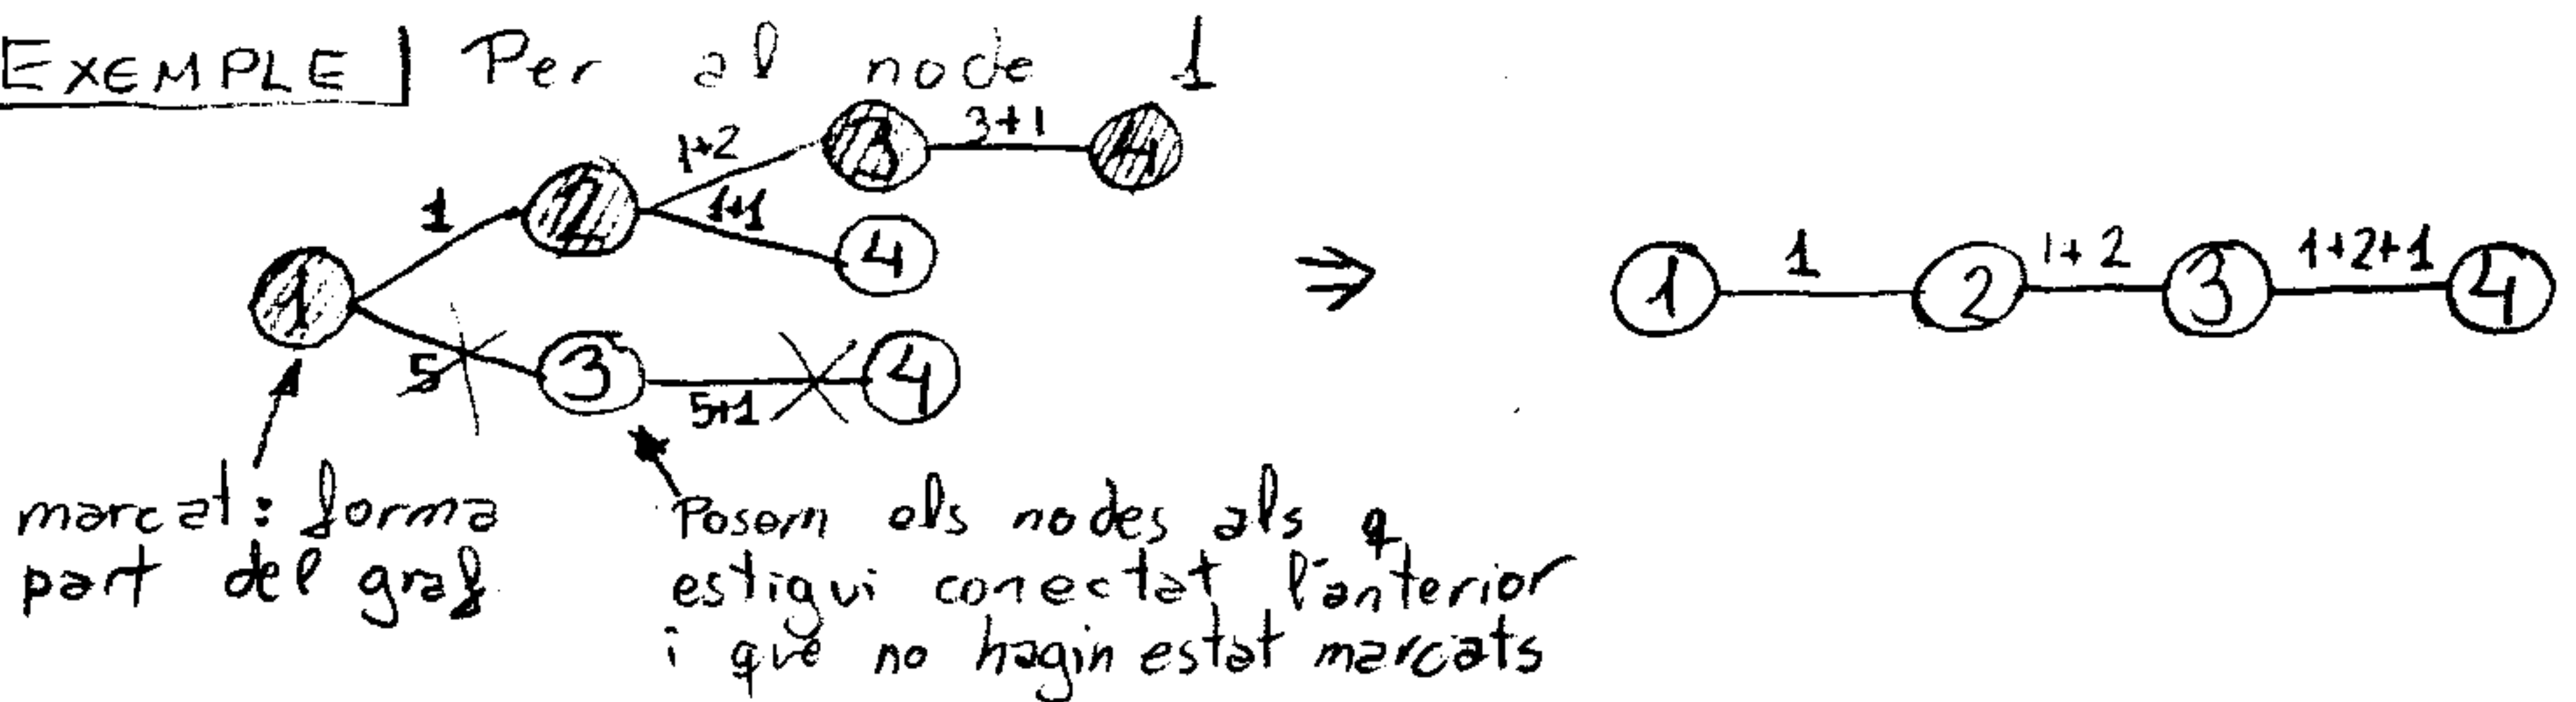 EXEMPLE Per al node 1
1+2 3+1
3 4
1 2 1+1
4
1 1 1+2 1+2+1
⇒ 1 2 3 4
5 3 5+1 4
marcat: forma
part del graf
Posem els nodes als q
estigui conectat l'anterior
i que no hagin estat marcats